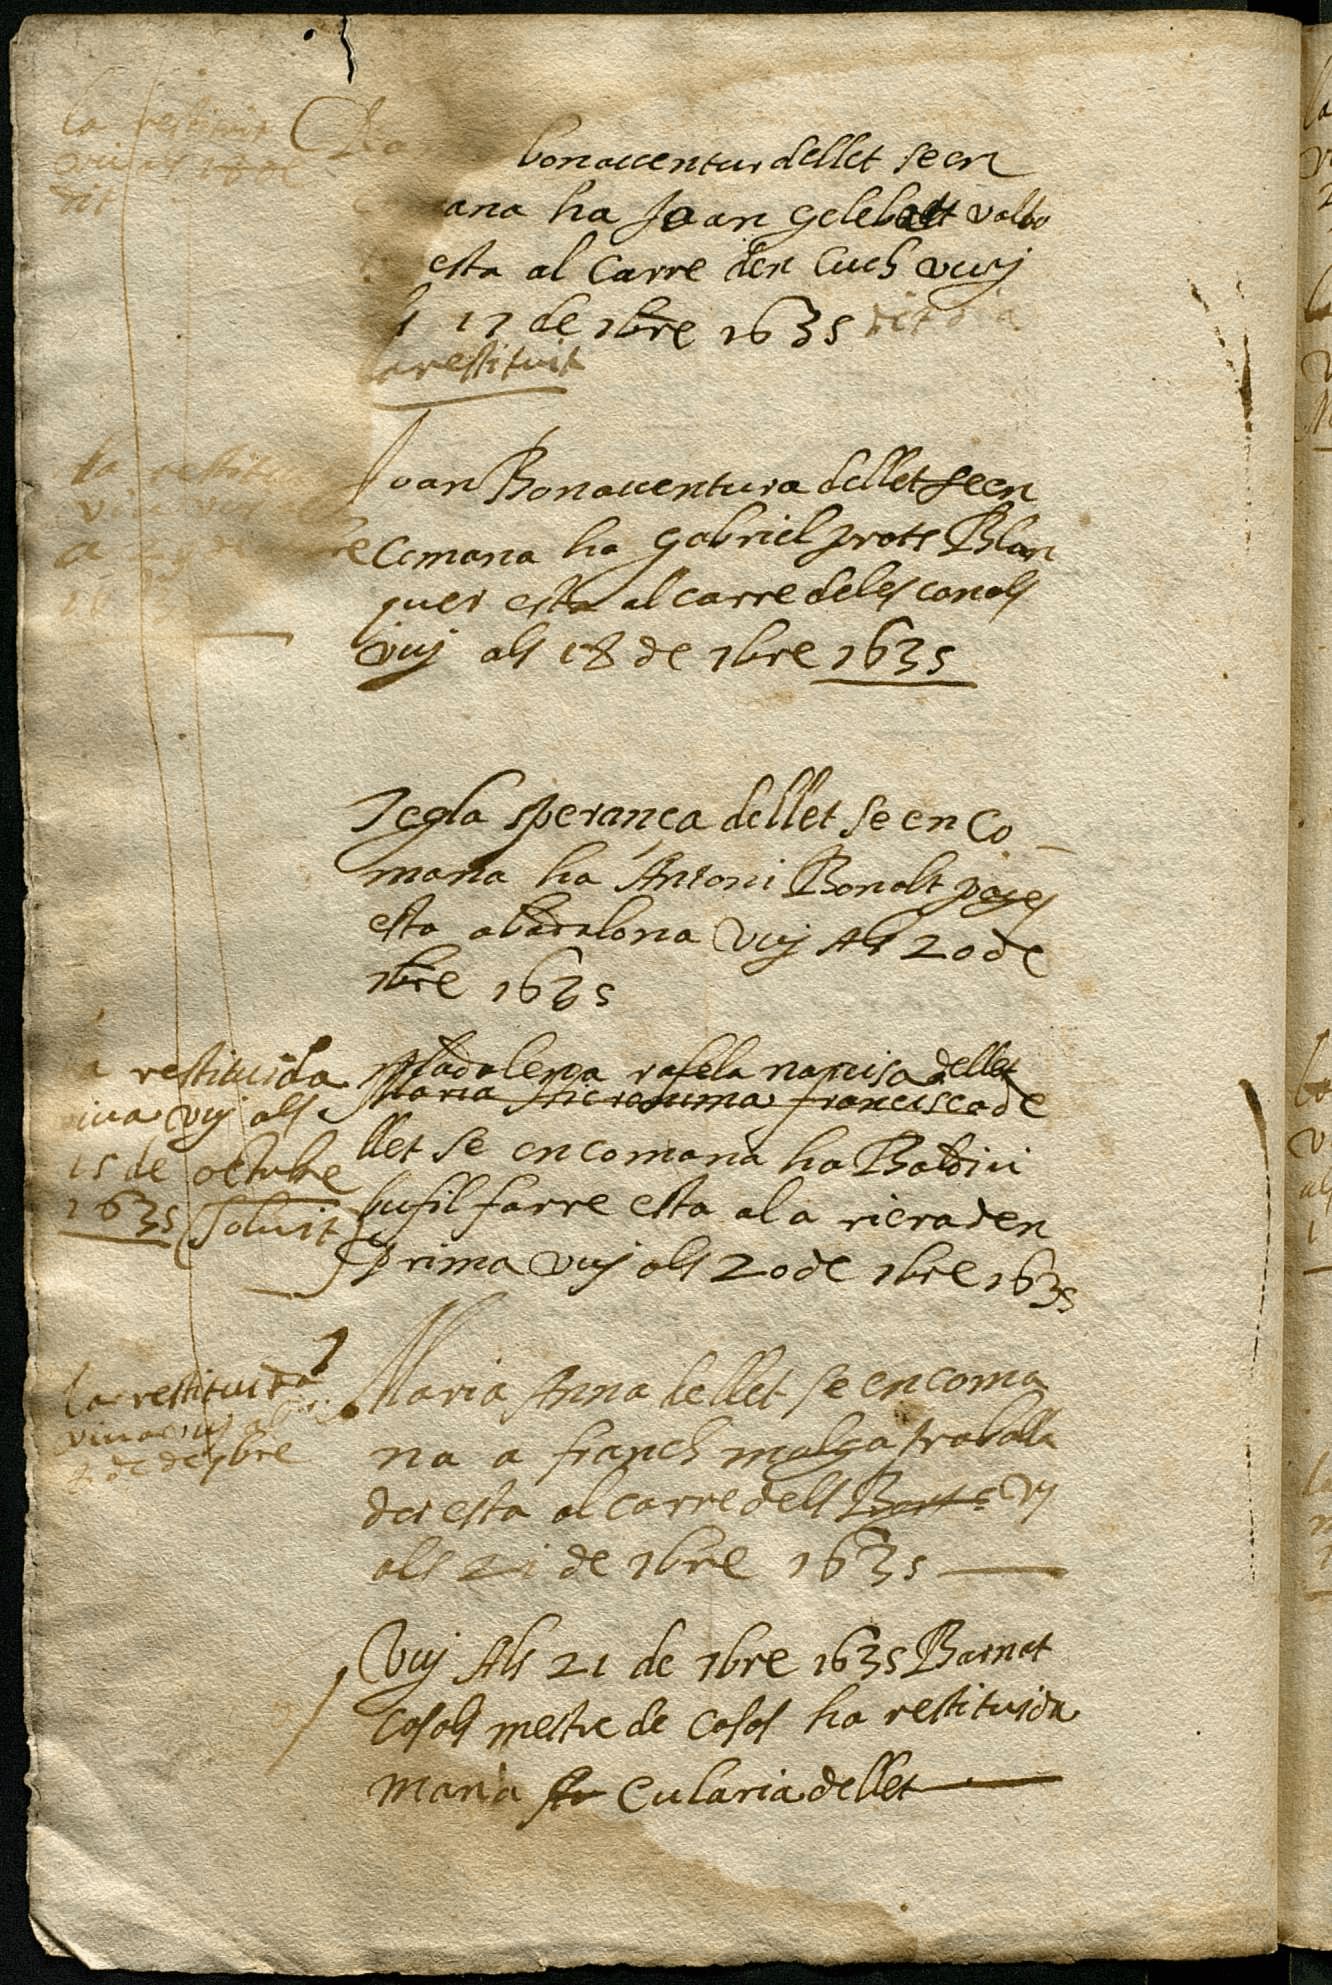 la restituit
viva als 18 de
dit
bonaventur dellet se en
ana ha Joan gelebert valdo
esta al carre den Cuch vuy
17 de 7bre 1635 dit dia
la restituit
la restitui
viva vuy
a 29 de
Joan Bonaventura dellet se en
comana ha gabriel prats Blan
quer esta al carre deles canals
vuy als 18 de 7bre 1635
Tegla sperança dellet se en co
mana ha Antoni Bonalt pages
esta abadalona vuy Als 20 de
7bre 1635
restituida
viva vuy als
15 de octubre
1635 (soluit)
Madalena rafela narcisa dellet
Maria Hieronima francisca de
llet se en comana ha Baldiri
bufil farre esta al a riera den
prima vuy als 20 de 7bre 1635
la restituida
viva vuy als
2 de desbre
Maria Anna dellet se en coma
na a franch malga traballa
dor esta al carre dells vy
als 21 de 7bre 1635
Vuy Als 21 de 7bre 1635 Barnat
Casals mestre de casas ha restituida
maria Eularia dellet